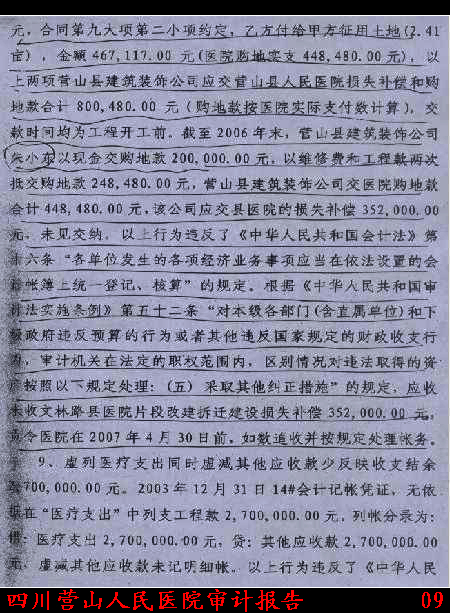 元，合同第九大项第二小项约定，乙方付给甲方征用土地(2.41
亩)，金额 467,117.00 元(医院购地实支 448,480.00 元)，以
上两项营山县建筑装饰公司应交营山县人民医院损失补偿和购
地款合计 800,480.00 元（购地款按医院实际支付数计算），交
款时间均为工程开工前。截至2006年末，营山县建筑装饰公司
朱小东以现金交购地款 200,000.00 元，以维修费和工程款两次
抵交购地款 248,480.00 元，营山县建筑装饰公司交医院购地款
合计 448,480.00 元，该公司应交县医院的损失补偿 352,000.00
元，未见交纳。以上行为违反了《中华人民共和国会计法》第
十六条 “各单位发生的各项经济业务事项应当在依法设置的会
计帐簿上统一登记、核算” 的规定。根据《中华人民共和国审
计法实施条例》第五十二条 “对本级各部门(含直属单位)和下
级政府违反预算的行为或者其他违反国家规定的财政收支行
为，审计机关在法定的职权范围内，区别情况对违法取得的资
产按照以下规定处理：(五) 采取其他纠正措施” 的规定，应收
未收文林路县医院片段改建拆迁建设损失补偿 352,000.00 元，
责令医院在 2007 年 4 月 30 日前，如数追收并按规定处理帐务。
9、虚列医疗支出同时虚减其他应收款少反映收支结余
2,700,000.00 元。2003 年 12 月 31 日 14#会计记帐凭证，无依
据在“医疗支出”中列支工程款 2,700,000.00 元，列帐分录为：
借：医疗支出 2,700,000.00 元，贷：其他应收款 2,700,000.00
元，虚减其他应收款未记明细帐。以上行为违反了《中华人民
四川营山人民医院审计报告 09